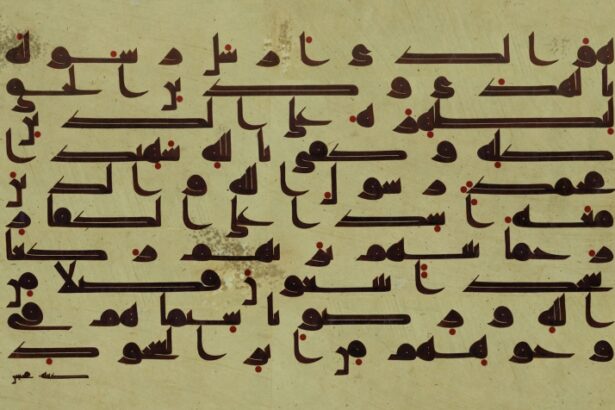 هو الذى ارسل رسوله
بالهدى ودين الحق
ليظهره على الدين
كله وكفى بالله شهيدا
محمد رسول الله والذين
معه اشدا على الكفار
رحما بينهم تريهم ركعا
سجدا يبتغون فضلا من
الله ورضونا سيماهم فى
وجوههم من اثر السجود